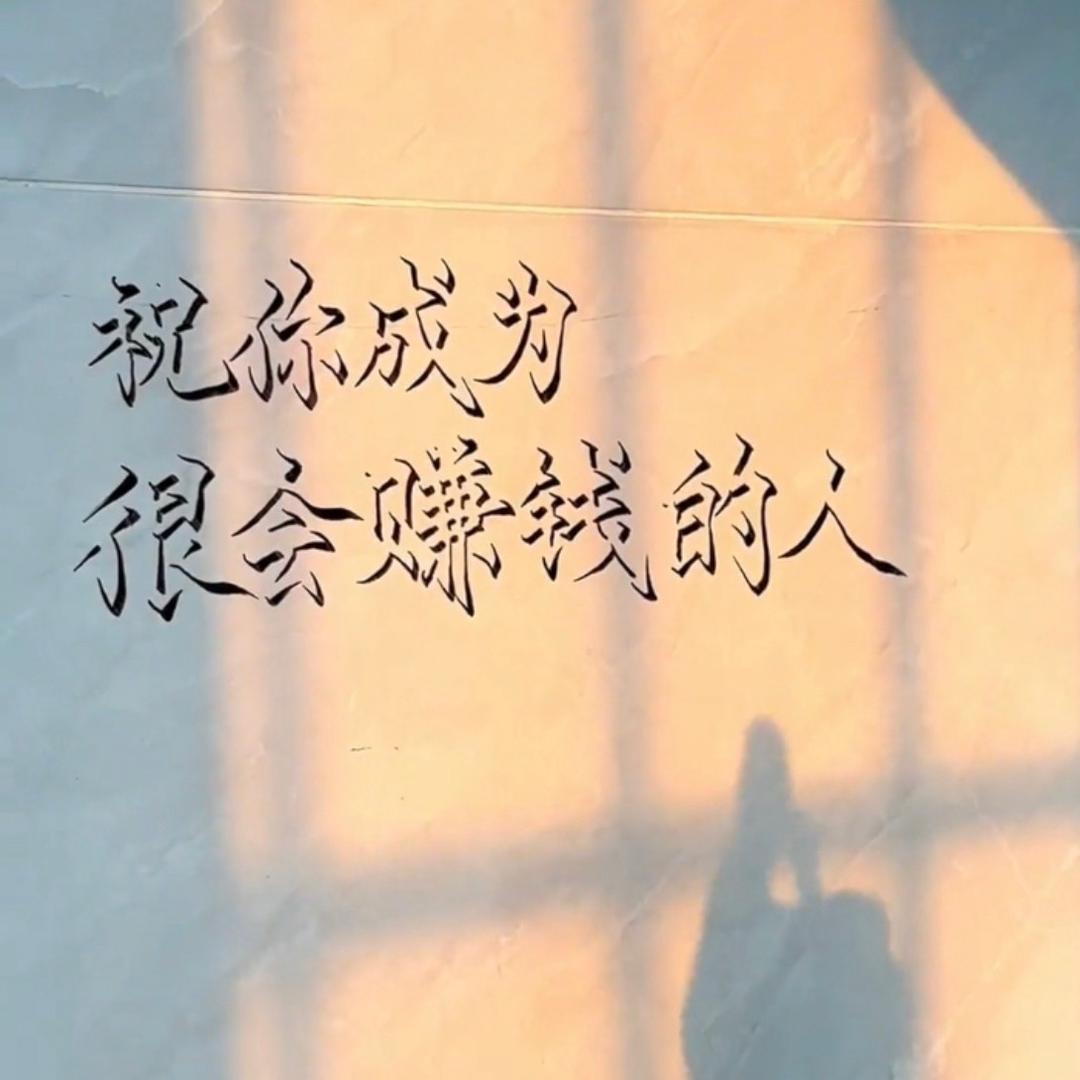 祝你成为
很会赚钱的人